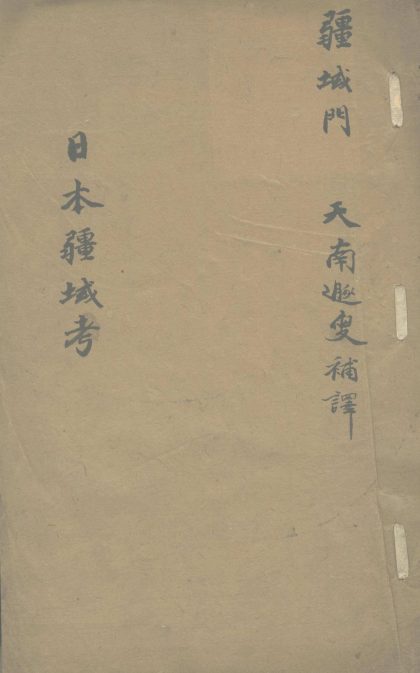 疆域門　天南遯叟補譯
日本疆域考